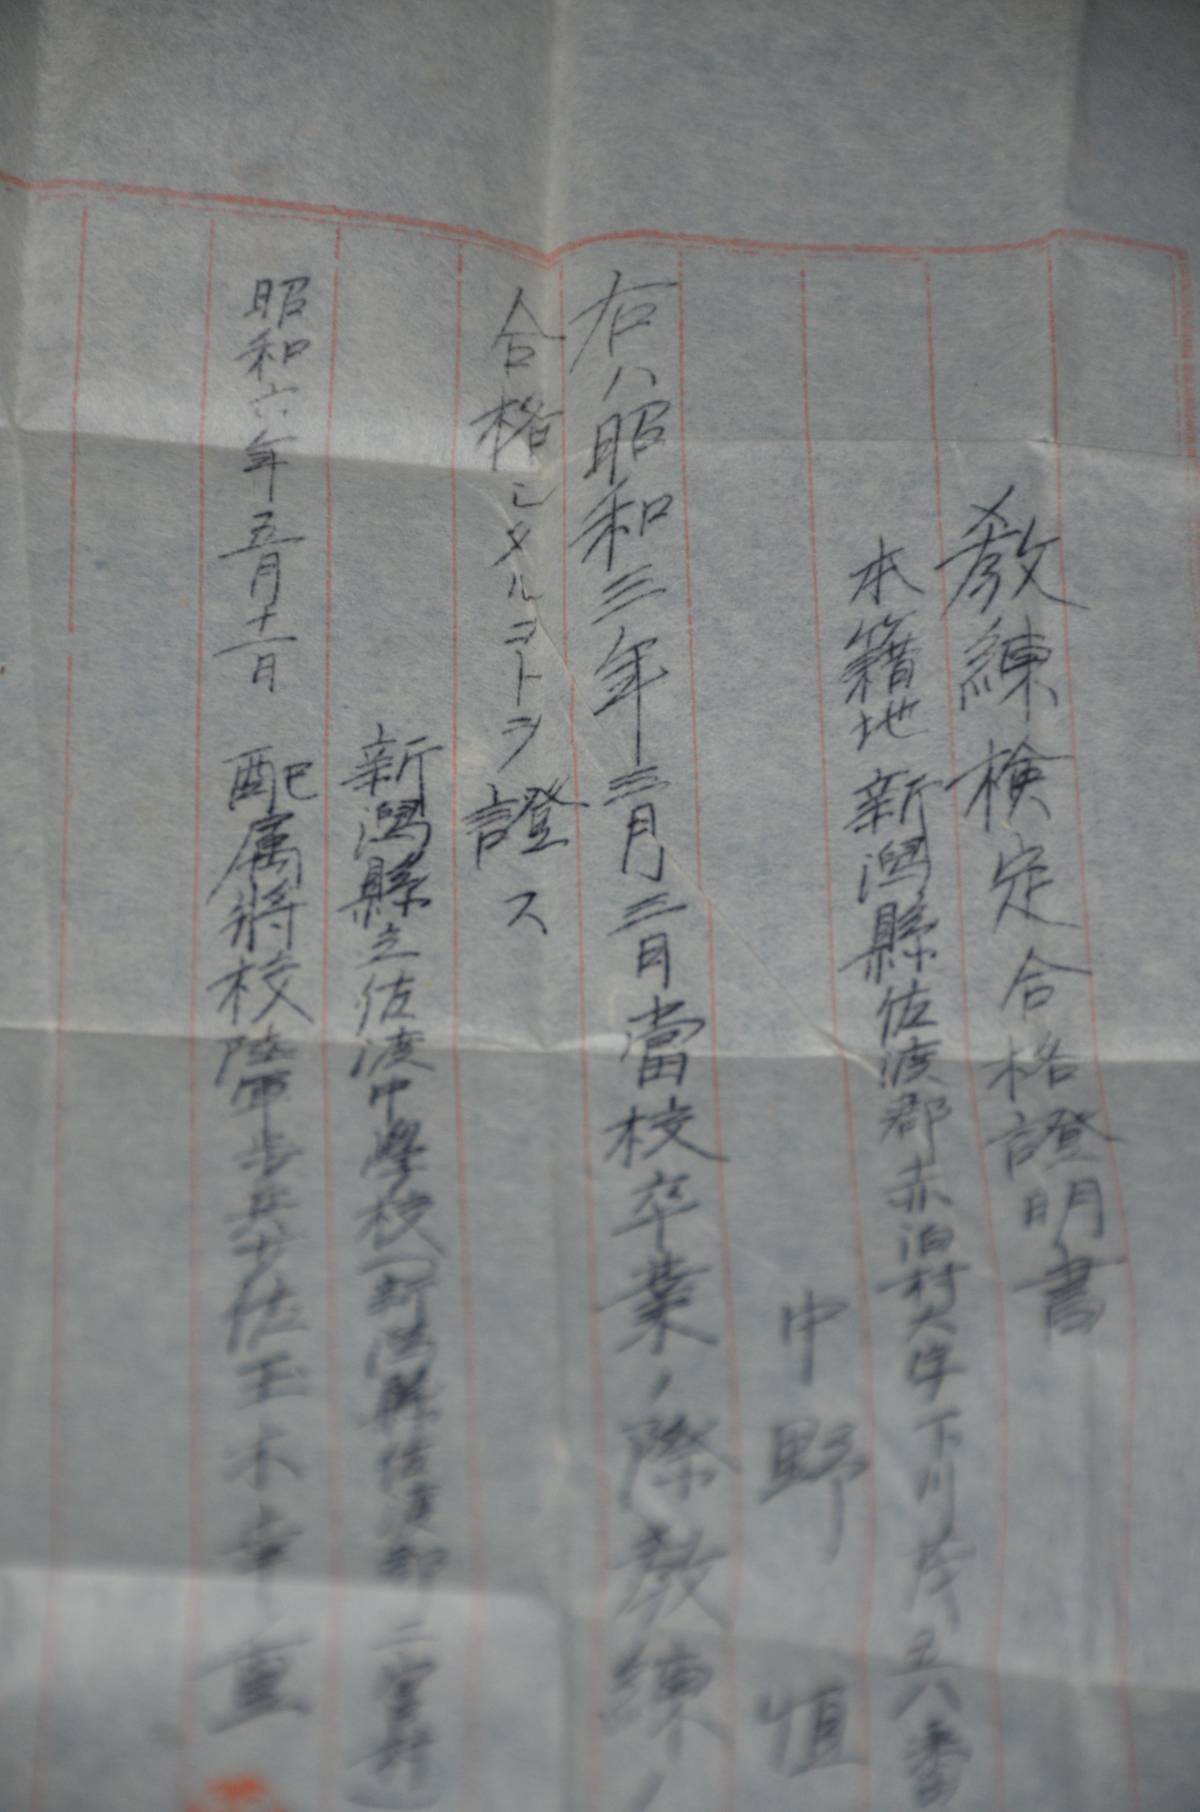 教練檢定合格證明書
本籍地新潟縣佐渡郡赤泊村大字下川茂五六番
中野恒
右ハ昭和三年三月三日當校卒業ノ際教練ノ
合格シタルコトヲ證ス
新潟縣立佐渡中學校(新潟縣佐渡郡二宮村)
昭和六年五月十一日 配属將校陸軍歩兵少佐玉木幸重